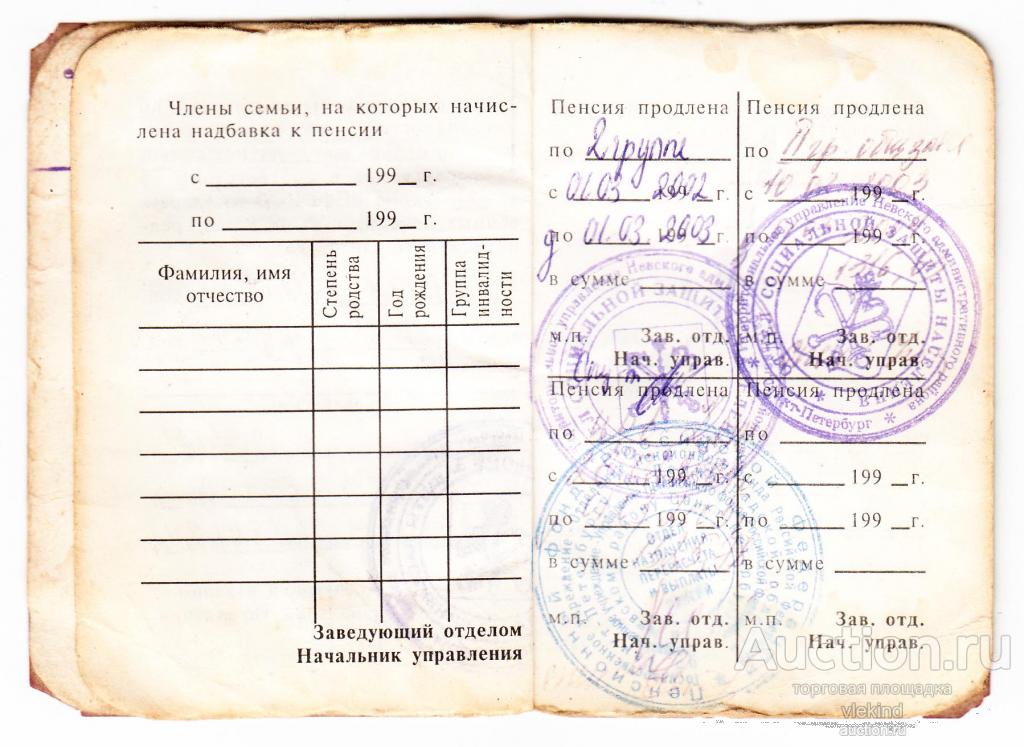 Члены семьи, на которых начис-
лена надбавка к пенсии
с 199 г.
по 199 г.
Фамилия, имя отчество
Степень родства
Год рождения
Группа инвалид-ности
Заведующий отделом
Начальник управления
Пенсия продлена
по 2 группе
с 01.03 2002 199 г.
до 01.03. 2003 199 г.
в сумме
м.п. Зав. отд.
Нач. управ.
Пенсия продлена
по II гр.
с 199 г.
по 199 г.
в сумме
м.п. Зав. отд.
Нач. управ.
Пенсия продлена
по
с 199 г.
по 199 г.
в сумме
м.п. Зав. отд.
Нач. управ.
Пенсия продлена
по
с 199 г.
по 199 г.
в сумме
м.п. Зав. отд.
Нач. управ.
Территориальное Управление Невского административного района
Санкт-Петербург
ОТДЕЛ СОЦИАЛЬНОЙ ЗАЩИТЫ НАСЕЛЕНИЯ
ОТДЕЛ
НАЗНАЧЕНИЯ
ПЕРЕРАСЧЕТА
И ВЫПЛАТЫ
Auction.ru
торговая площадка
vlekind
auction.ru